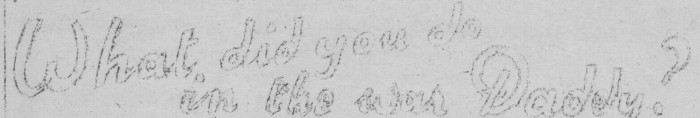 What did you do
in the war Daddy?